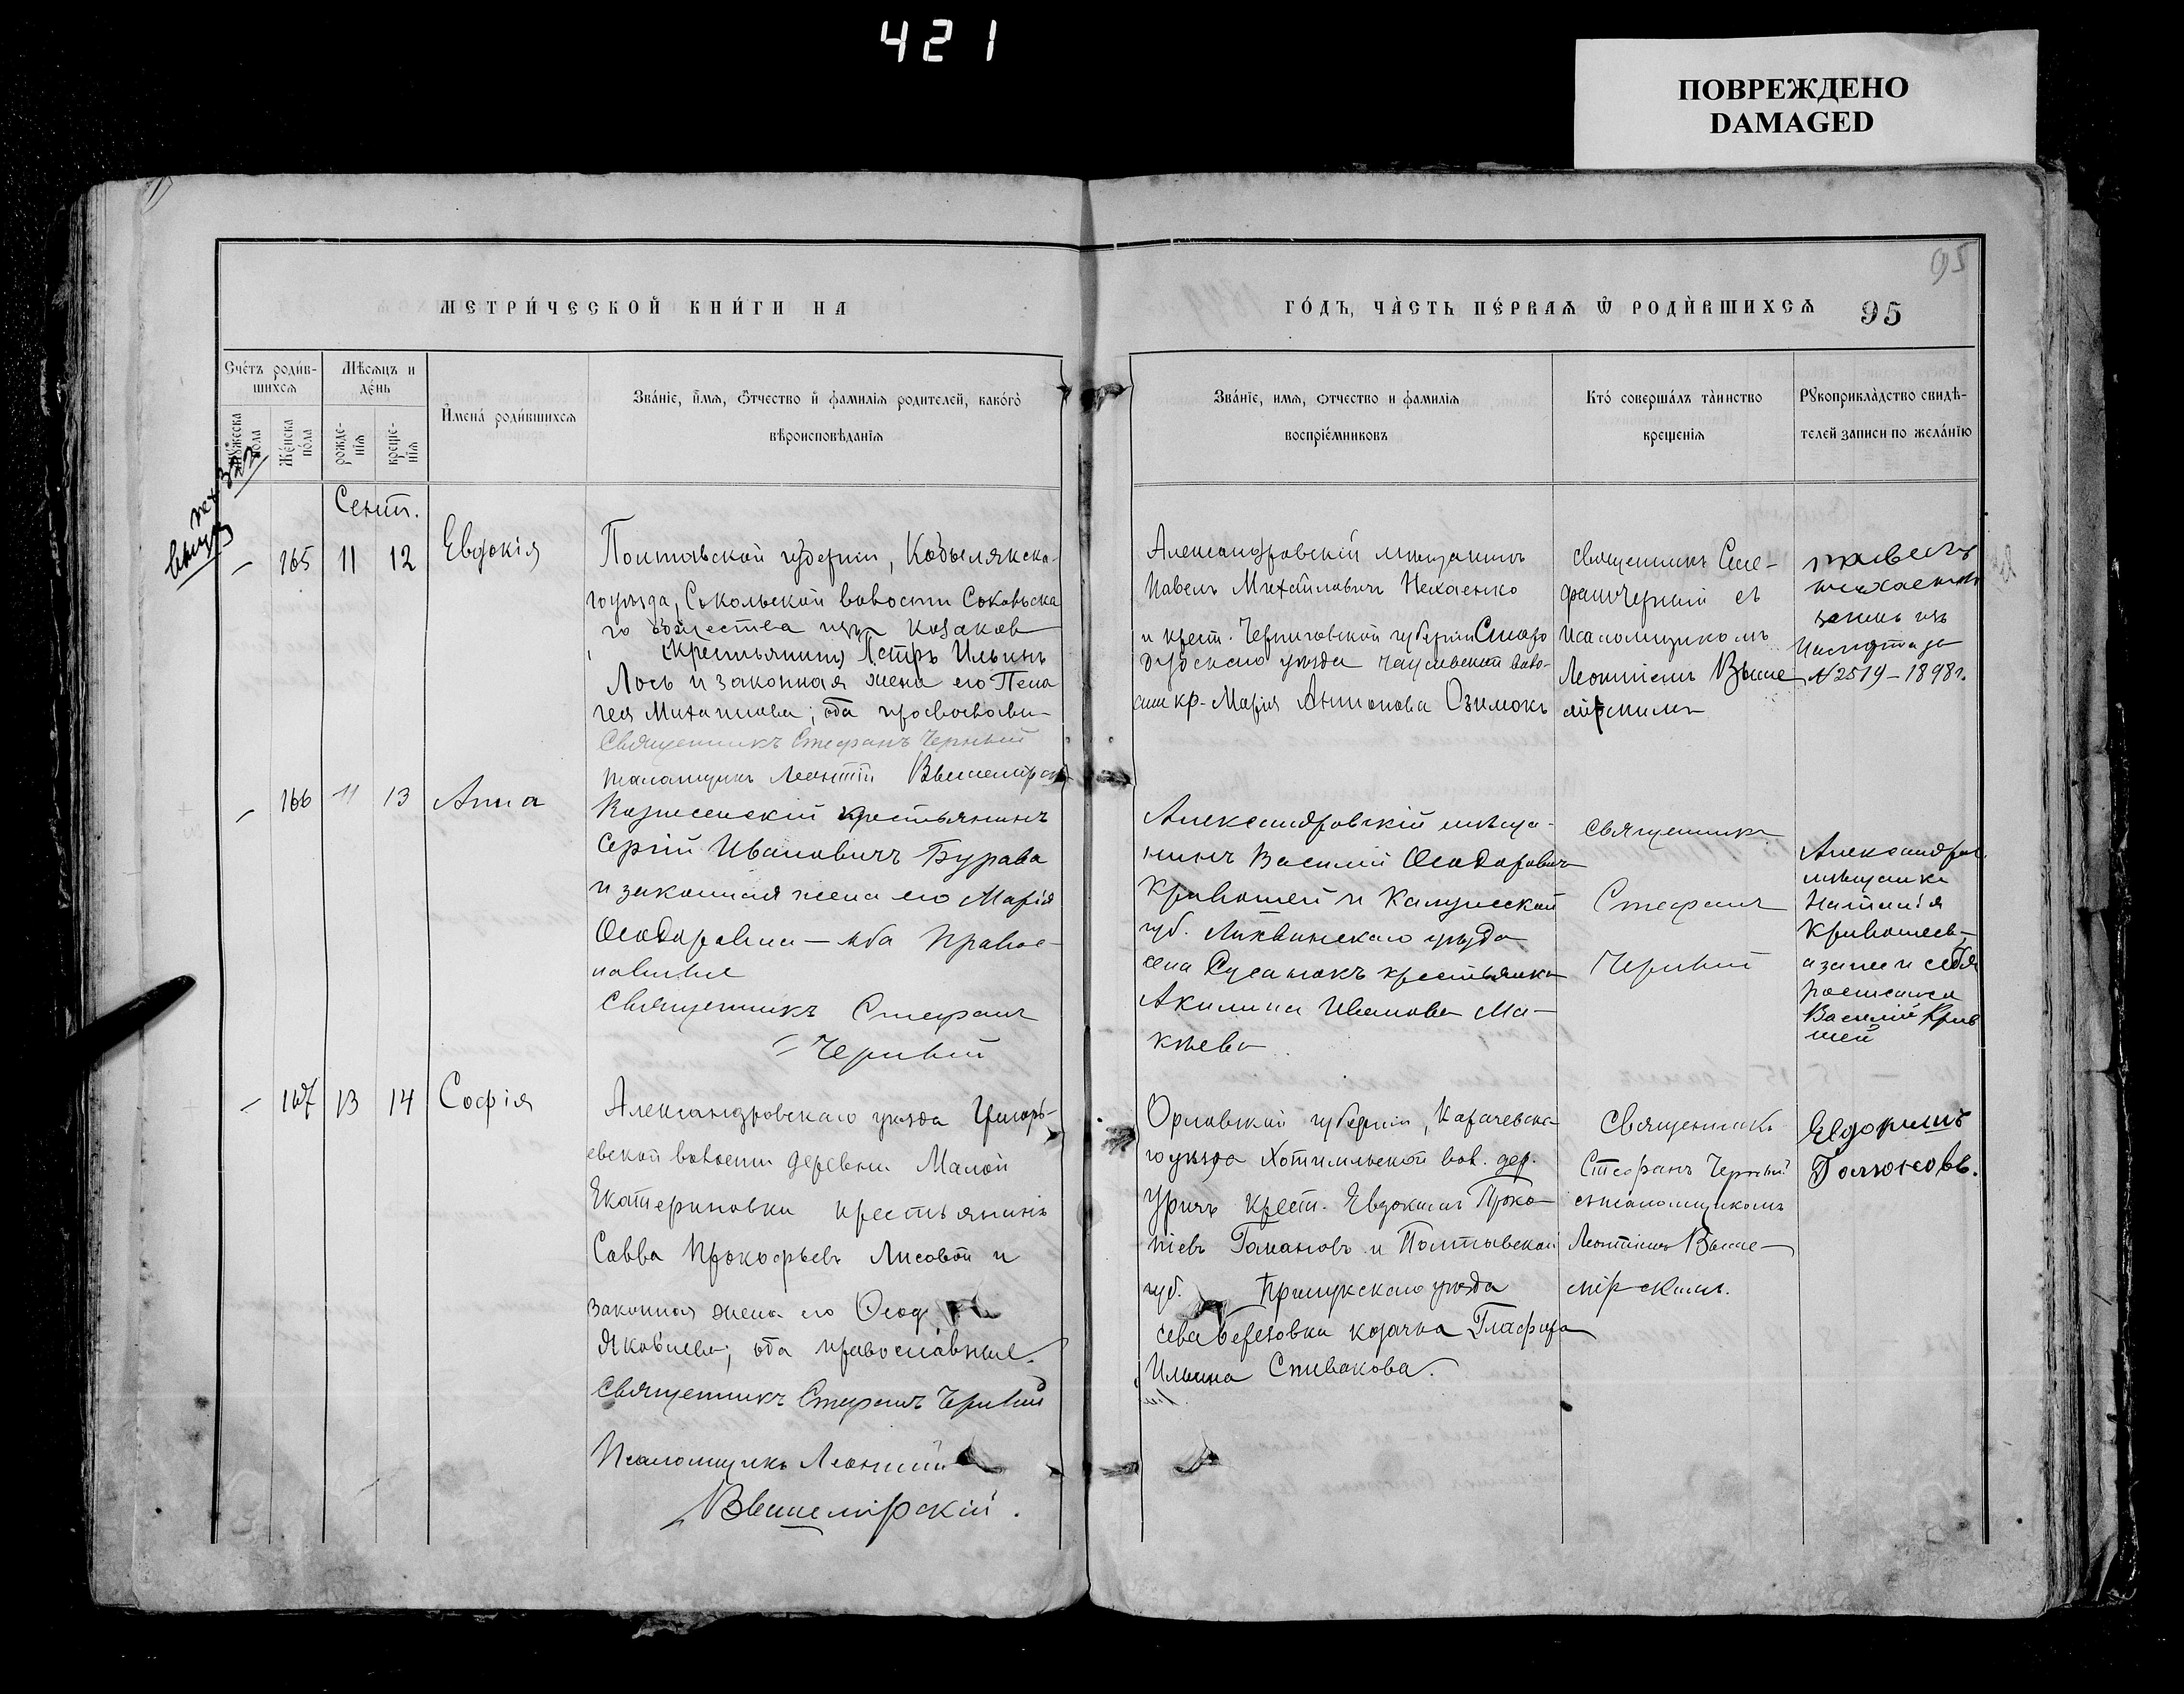 421
ПОВРЕЖДЕНО
DAMAGED
95
МЕТРИ́ЧЕСКОЙ КНИ́ГИ НА
ГО́ДЪ, ЧА́СТЬ ПЕ́РВАѦ Ѿ РОДИ́ВШИХСѦ 95
Сче́тъ роди́в-
шихсѧ
Мѣ́сѧцъ и
де́нь
Мꙋжеска
по́ла
Же́нска
по́ла
рожде-
нїѧ
креще-
нїѧ
И҆мена̀ роди́вшихсѧ
Зва́нїе, и҆́мѧ, ѻ҆́тчество и҆ фамилїѧ родителей, како́гѡ
вѣроисповѣ́данїѧ
Зва́нїе, имѧ, ѻтчество и фамилїѧ
воспрїе́мниковъ
Кто̀ соверша́лъ та́инство
крещенїѧ
Рꙋкоприкла́дство свидѣ-
телей записи по жела́нїю
Сент.
165 11 12 Евдокія
Полтавской губерніи, Кобылякска-
го уѣзда, Сокольской волости Сокольска
го общества изъ козаков
(крестьянинъ) Петръ Ильинъ
Лось и законная жена его Пела
гея Михаилова; оба православн-
Священникъ Стефанъ Черный
Псаломщикъ Леонтій Вышемірскій
Александровскій мѣщанинъ
Павелъ Михайловичъ Нехаенко
и крест. Черниговской губерніи Старо
дубскаго уѣзда
кр. Марія Антонова Озимокъ
Священникъ Сте-
фанъ Черный съ
псаломщикомъ
Леонтіемъ Выше
мірскимъ
№ 2519 – 1898 г.
166 11 13 Анна
крестьянинъ
Сергій Ивановичъ Бурава
и законная жена его Марія
Ѳеодоровна — оба Правос-
лавные
Священникъ Стефанъ
Черный
Александровскій мѣща-
нинъ Василій Ѳеодоровичъ
Кривошей и Калужской
губ. Лихвинскаго уѣзда
села крестьянка
Акилина Иванова Ма-
кѣева
Священникъ
Стефанъ
Черный
Александров.
мѣщанка
Наталія
Кривошей
а за нее и себя
росписался
Василій Криво
шей
167 13 14 Софія
Александровскаго уѣзда Григорь-
евской волости деревни Малой
Екатериновки крестьянинъ
Савва Прокофьевъ Лисовой и
законная жена его Ѳеод
Яковлева; оба православные.
Священникъ Стефанъ Черный
Псаломщикъ Леонтій
Вышемірскій.
Орловской губерніи, Карачевска-
го уѣзда Хотимльской вол. дер.
Уричъ крест. Евдокимъ Проко-
піевъ и Полтавской
губ. Прилукскаго уѣзда
села Березовки козачка Глафира
Ильина Спивакова.
Священникъ
Стефанъ Черный
съ псаломщикомъ
Леонтіемъ Выше-
мірскимъ.
Евдокимъ